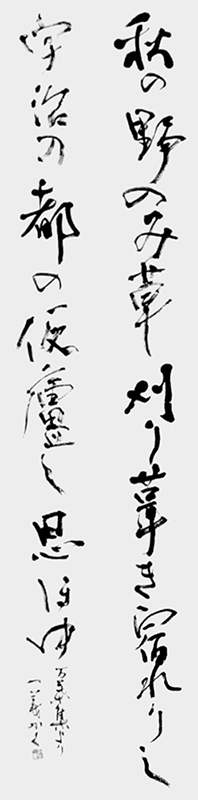 秋の野のみ草刈り葺き宿れりし
宇治の都の仮廬し思ほゆ
万葉集より